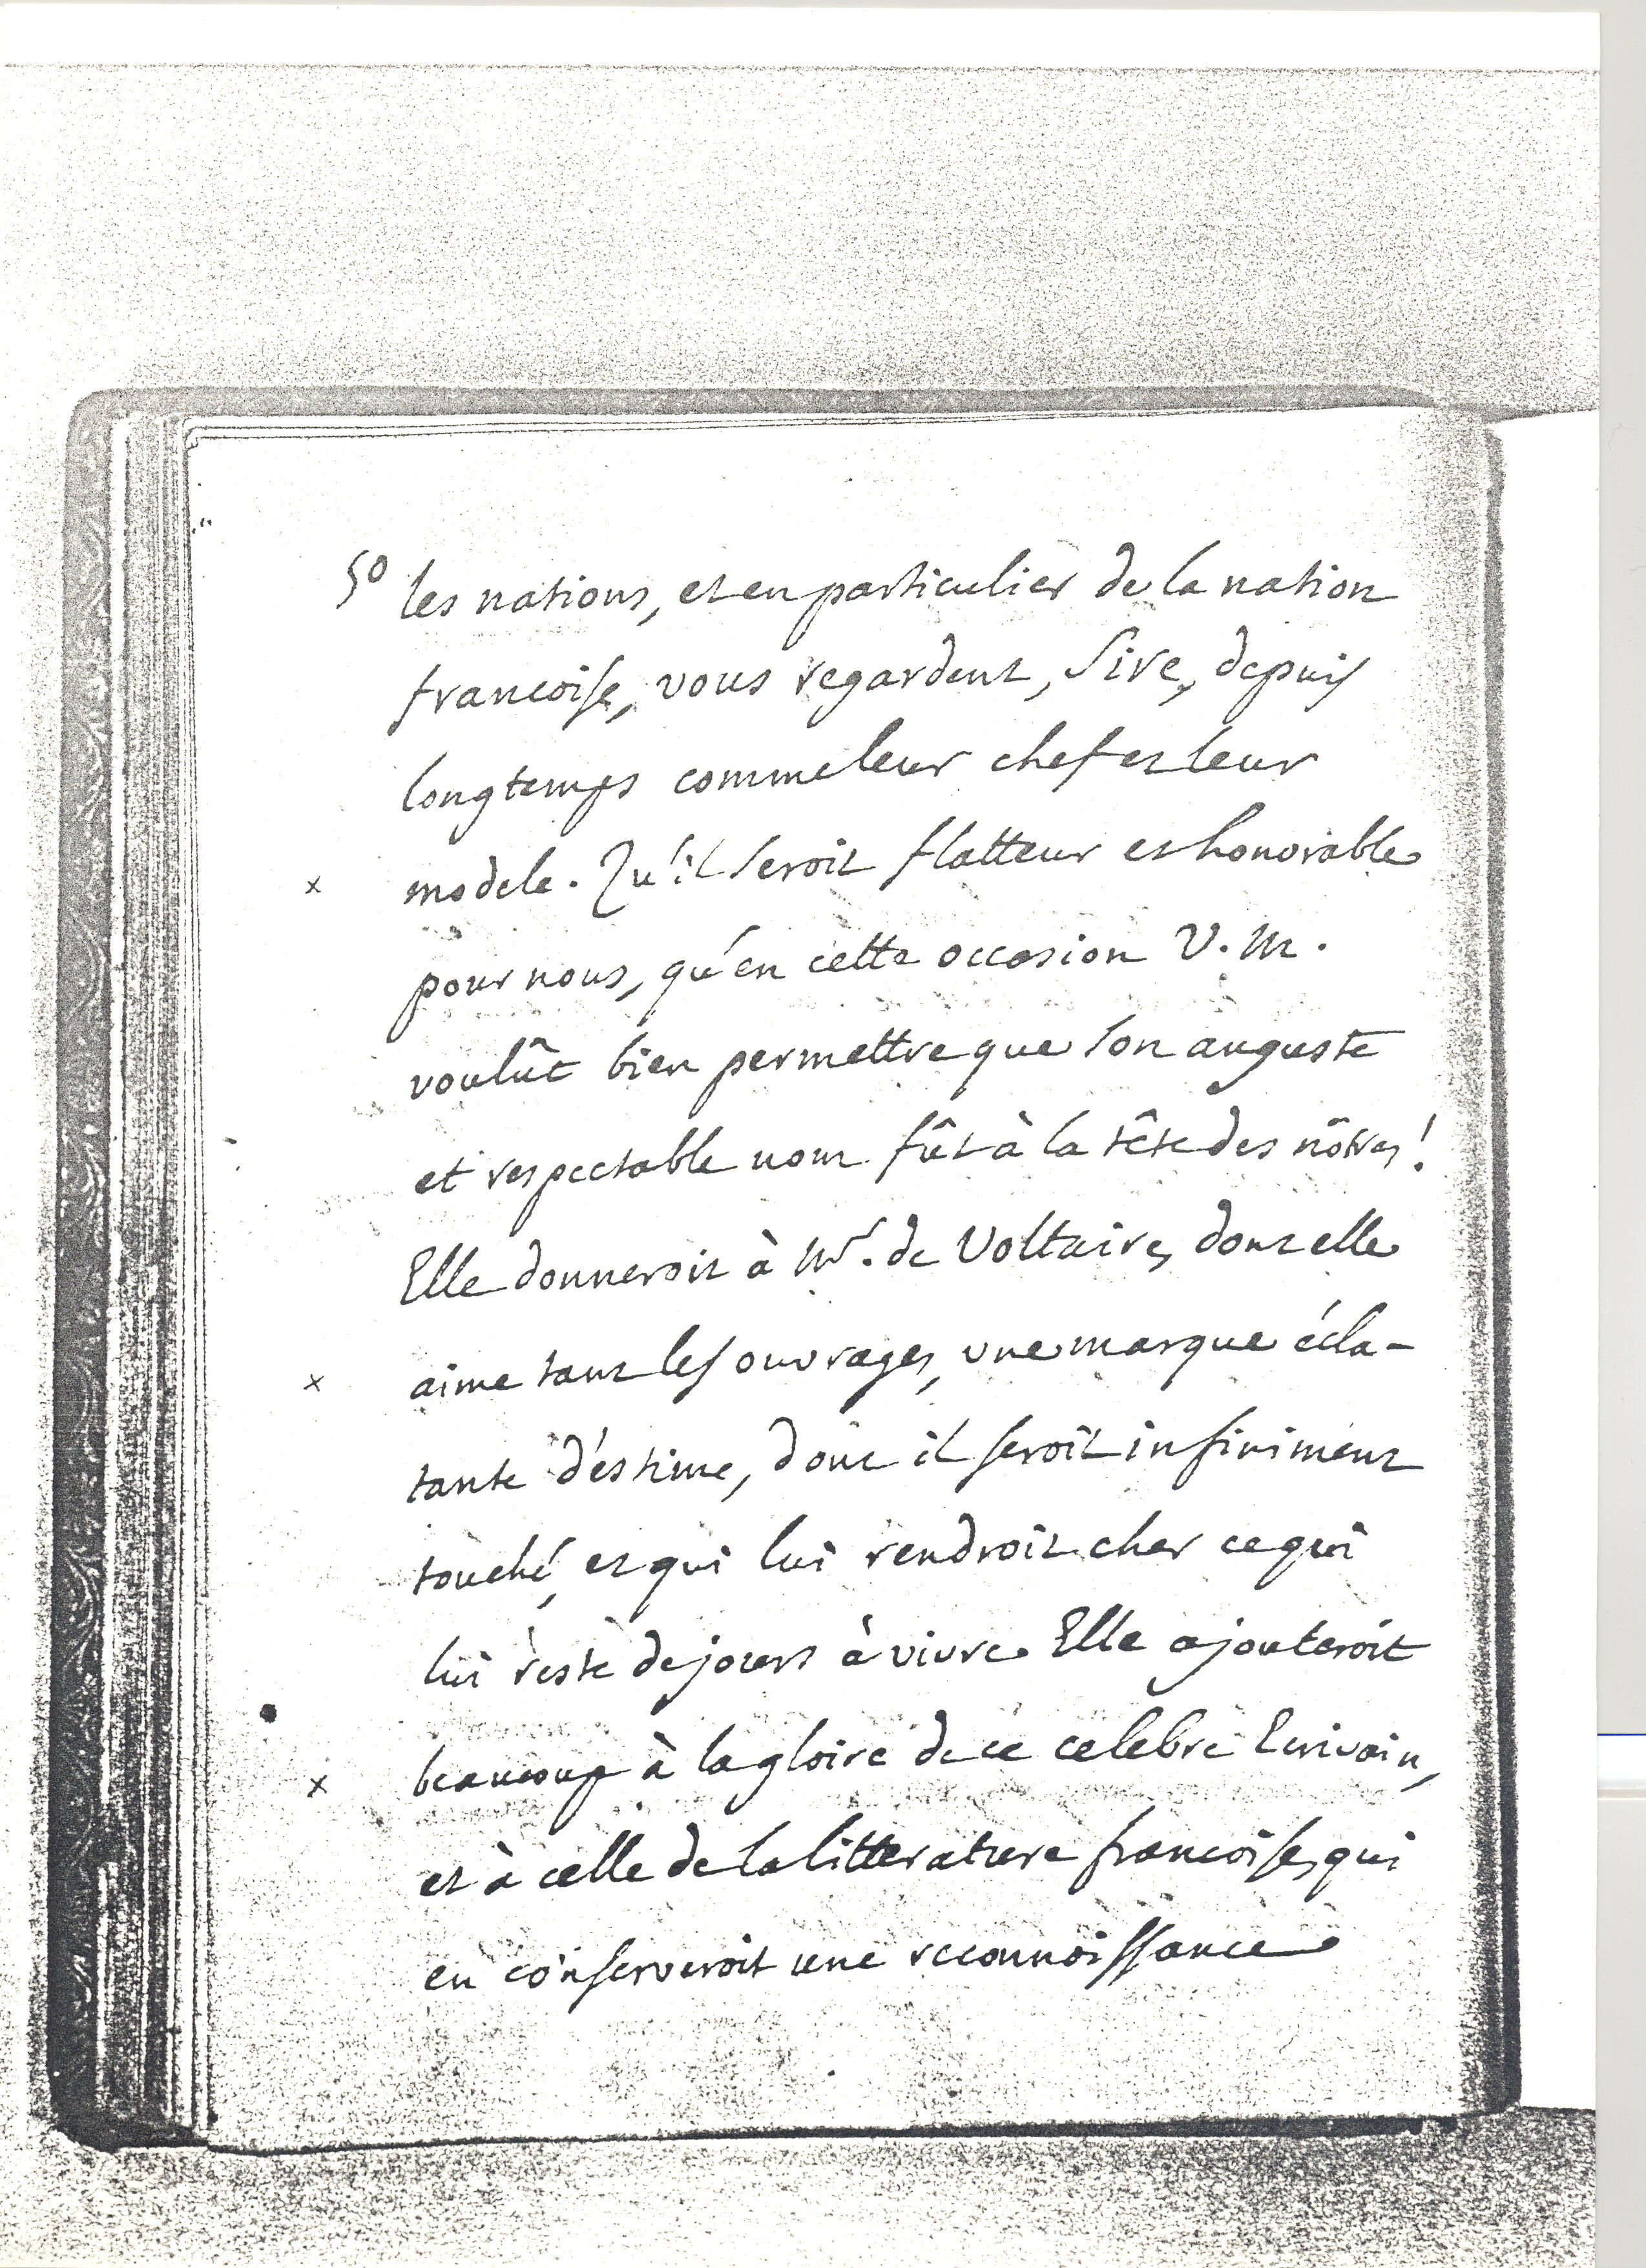 50 les nations, et en particulier de la nation
francoise, vous regardent, Sire, depuis
longtemps comme leur chef et leur
x modele. Qu'il seroit flatteur et honorable
pour nous, qu'en cette occasion V. M.
voulût bien permettre que son auguste
et respectable nom fût à la tête des nôtres!
Elle donneroit à Mr. de Voltaire, dont elle
x aime tant les ouvrages, une marque écla-
tante d'éstime, dont il seroit infiniment
touché, et qui lui rendroit cher ce qui
lui reste de jours à vivre. Elle ajouteroit
x beaucoup à la gloire de ce celebre Ecrivain,
et à celle de la litterature francoise, qui
en conserveroit une reconnoissance